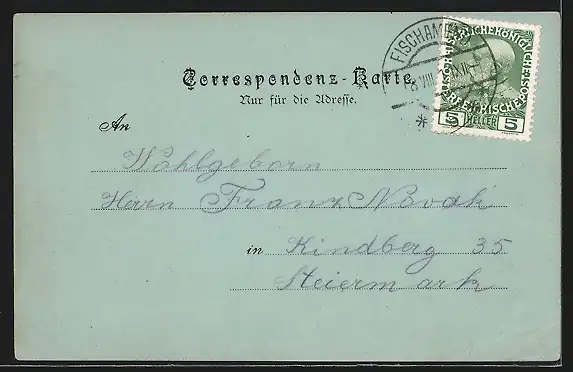 FISCHAMEND
8 VIII
Correspondenz-Karte.
Nur für die Adresse.
5 HELLER 5
An
Wohlgeborn
Herrn Franz Novak
in Kindberg 35
Steiermark